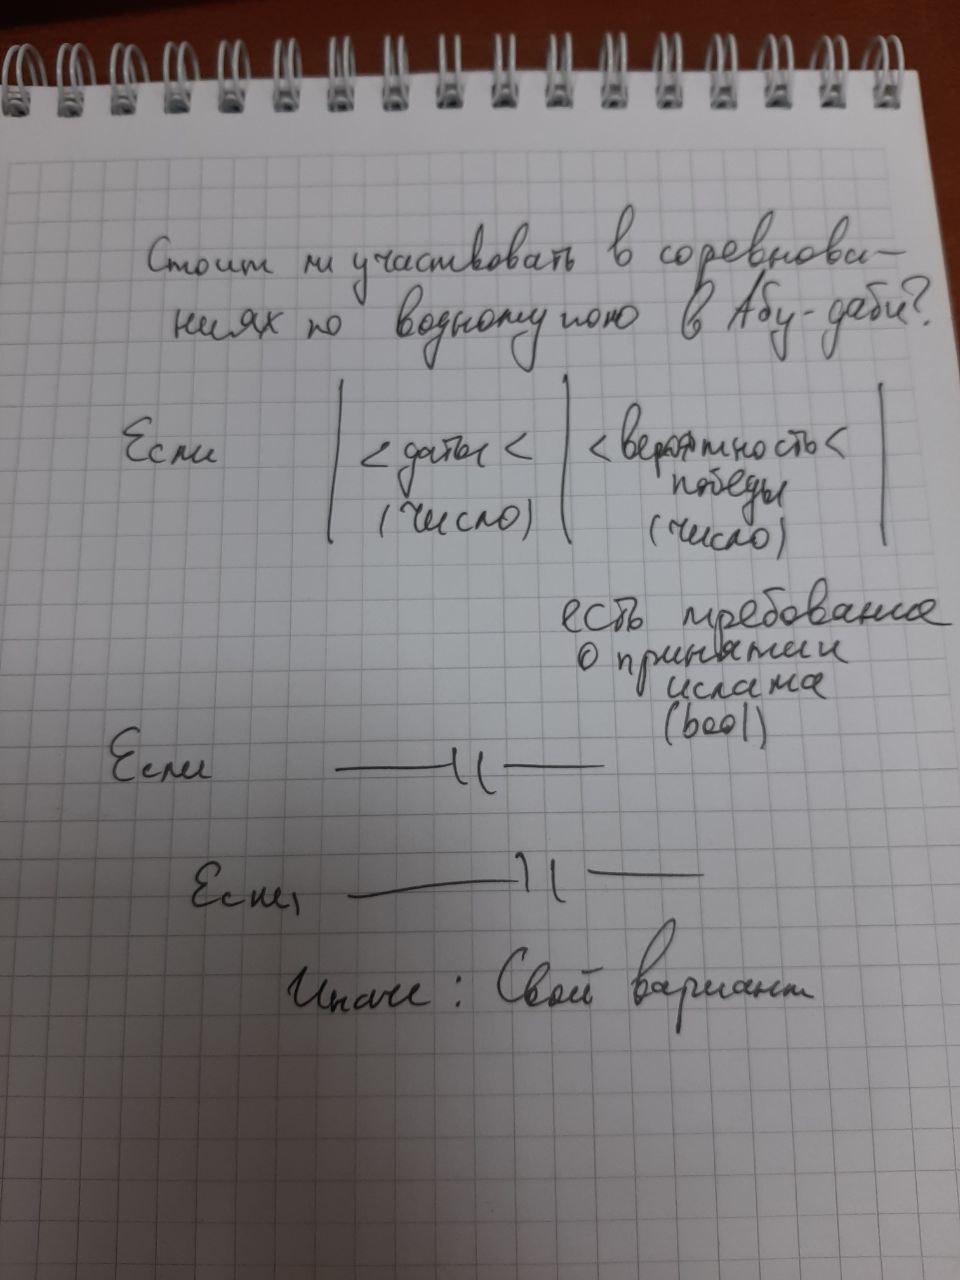 Стоит ли участвовать в соревнова-
ниях по водному поло в Абу-даби?
Если | < даты < | < вероятность < |
победы
(число) (число)
есть требование
о принятии
ислама
(bool)
Если — || —
Если, — || —
Иначе: Свой вариант